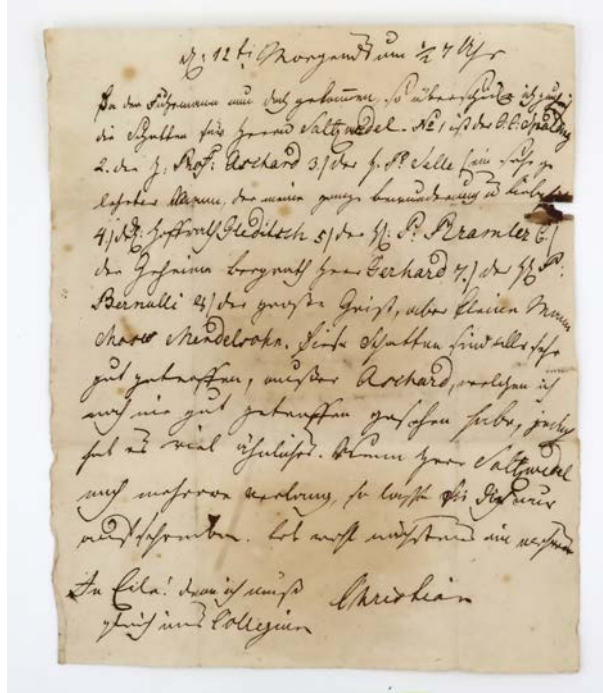 d: 12t Morgends um ½ 7 Uhr
Da der Fuhrmann nun doch gekommen, so überschicke ich
die Schatten für Herrn Saltzwedel. No 1 ist der Spalding
2. der H: Prof: Aschard 3) der H. P. Selle (ein sehr ge
lehrter Mann, der meine gantze bewunderung u liebe
4) der Hoffrath Gleditsch 5) der H: P: Ramler 6)
der Geheime bergrath Herr Gerhard 7.) der H P:
Bernulli 8) der grosse Geist, aber kleine Mann
Moses Mendelsohn. Diese Schatten sind alle sehr
gut getroffen, ausser Aschard, welchen ich
noch nie gut getroffen gesehen habe, jedoch
hat es viel ähnliches. Wenn Herr Saltzwedel
noch mehrere verlang, so lasse Sie nur
ausschreiben. leb wohl nächstens ein mehrers
In Eile! denn ich muss Christian
gleich ins Collegium